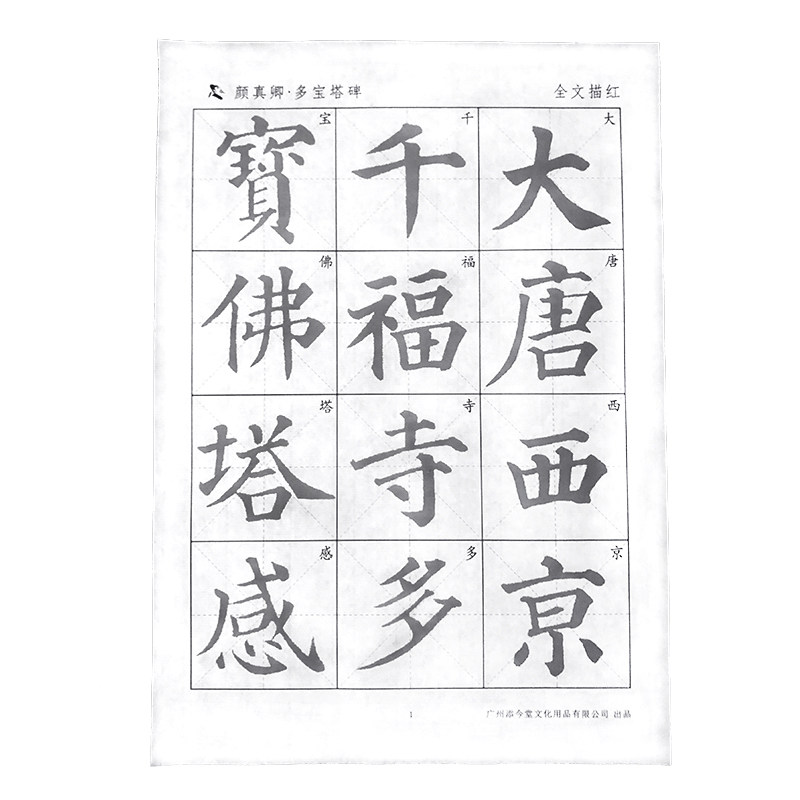 颜真卿·多宝塔碑
全文描红
大唐西亰
大唐西京
千福寺多
千福寺多
寶佛塔感
宝佛塔感
1
广州今堂文化用品有限公司 出品